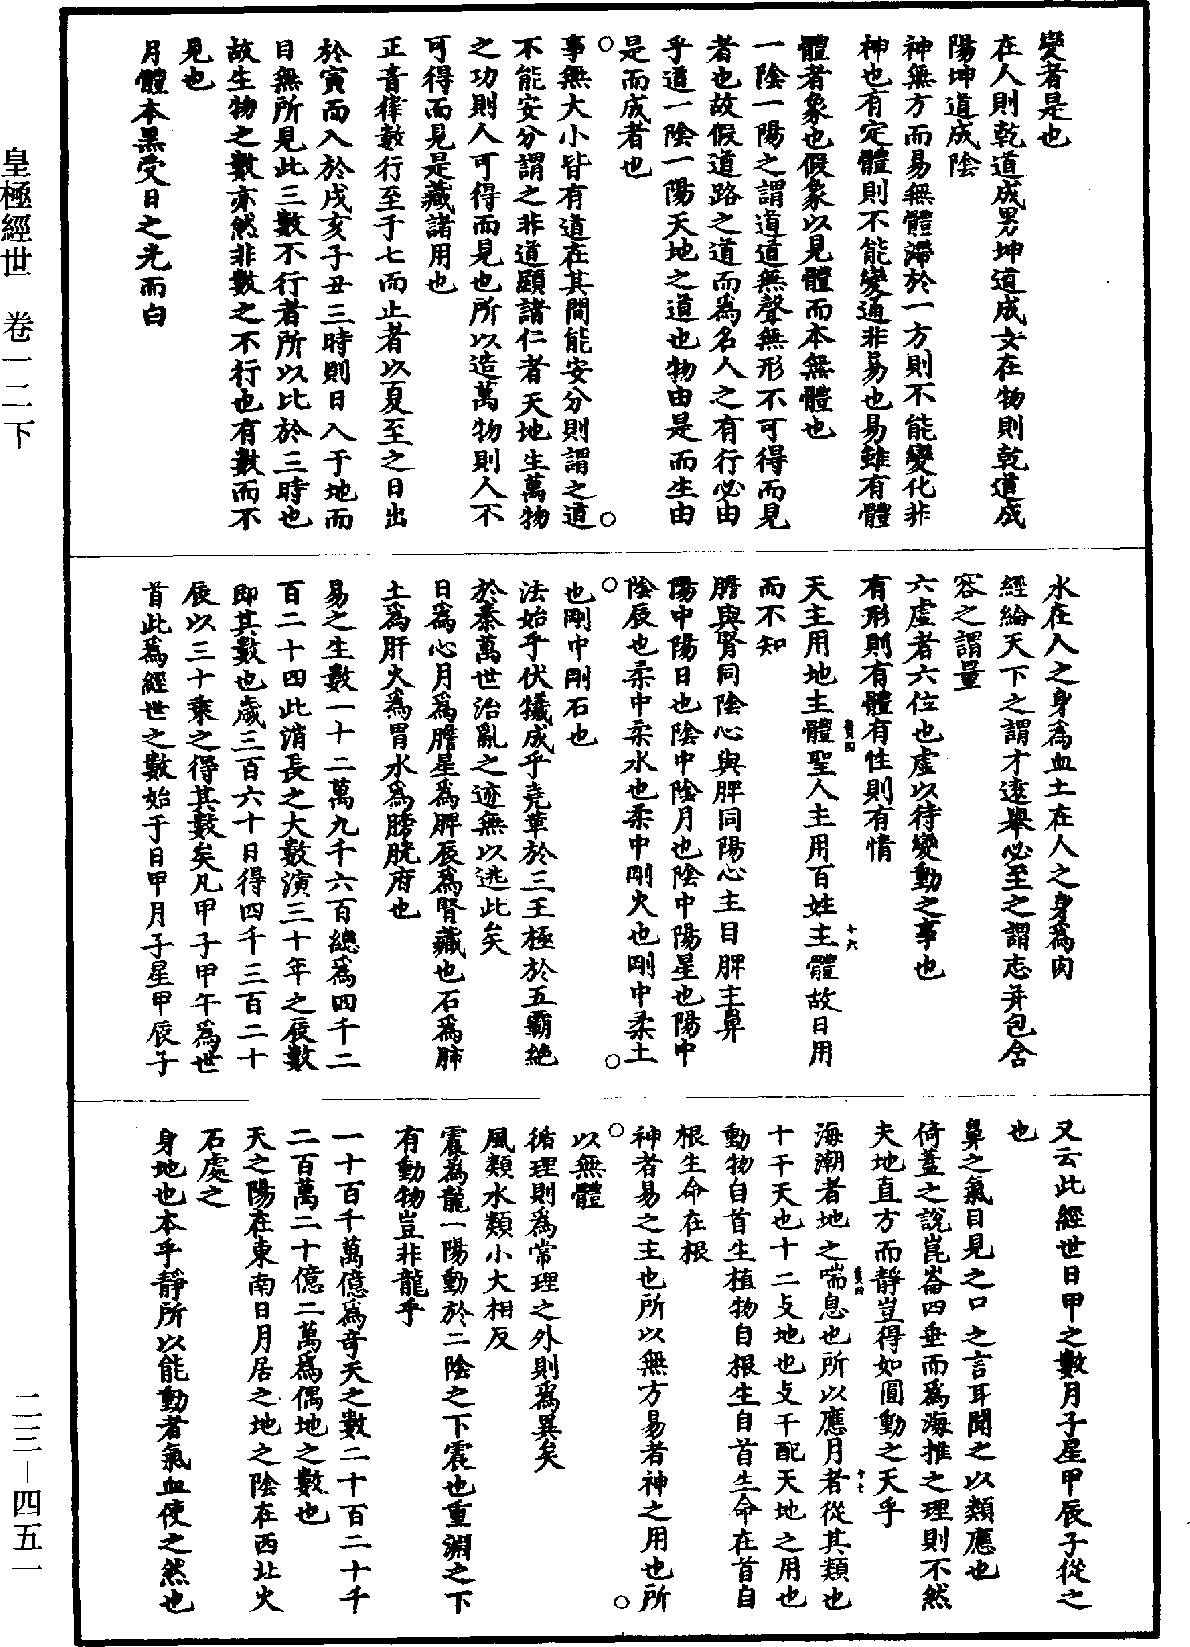 變者是也
在人則乾道成男坤道成女在物則乾道成
陽坤道成陰
神無方而易無體滯於一方則不能變化非
神也有定體則不能變通非易也易雖有體
體者象也假象以見體而本無體也
一陰一陽之謂道道無聲無形不可得而見
者也故假道路之道而爲名人之有行必由
乎道一陰一陽天地之道也物由是而生由
是而成者也
事無大小皆有道在其間能安分則謂之道
不能安分謂之非道顯諸仁者天地生萬物
之功則人可得而見也所以造萬物則人不
可得而見是藏諸用也
正音律數行至于七而止者以夏至之日出
於寅而入於戌亥子丑三時則日入于地而
目無所見此三數不行者所以比於三時也
故生物之數亦然非數之不行也有數而不
見也
月體本黑受日之光而白
水在人之身爲血土在人之身爲肉
經綸天下之謂才遠舉必至之謂志并包含
容之謂量
六虛者六位也虛以待變動之事也
有形則有體有性則有情
天主用地主體聖人主用百姓主體故日用
而不知
膽與腎同陰心與脾同陽心主目脾主鼻
陽中陽日也陰中陰月也陰中陽星也陽中
陰辰也柔中柔水也柔中剛火也剛中柔土
也剛中剛石也
法始乎伏犧成乎堯革於三王極於五霸絕
於秦萬世治亂之迹無以逃此矣
日爲心月爲膽星爲脾辰爲腎藏也石爲肺
土爲肝火爲胃水爲膀胱府也
易之生數一十二萬九千六百總爲四千二
百二十四此消長之大數演三十年之辰數
即其數也歲三百六十日得四千三百二十
辰以三十乘之得其數矣凡甲子甲午爲世
首此爲經世之數始于日甲月子星甲辰子
又云此經世日甲之數月子星甲辰子從之
也
鼻之氣目見之口之言耳聞之以類應也
倚蓋之說崑崙四垂而爲海推之理則不然
夫地直方而靜豈得如圓動之天乎
海潮者地之喘息也所以應月者從其類也
十干天也十二支地也支干配天地之用也
動物自首生植物自根生自首生命在首自
根生命在根
神者易之主也所以無方易者神之用也所
以無體
循理則爲常理之外則爲異矣
風類水類小大相反
震爲龍一陽動於二陰之下震也重淵之下
有動物豈非龍乎
一十百千萬億爲奇天之數二十百二十千
二百萬二十億二萬爲偶地之數也
天之陽在東南日月居之地之陰在西北火
石處之
身地也本乎靜所以能動者氣血使之然也
皇極經世　卷一二下
二三－四五一